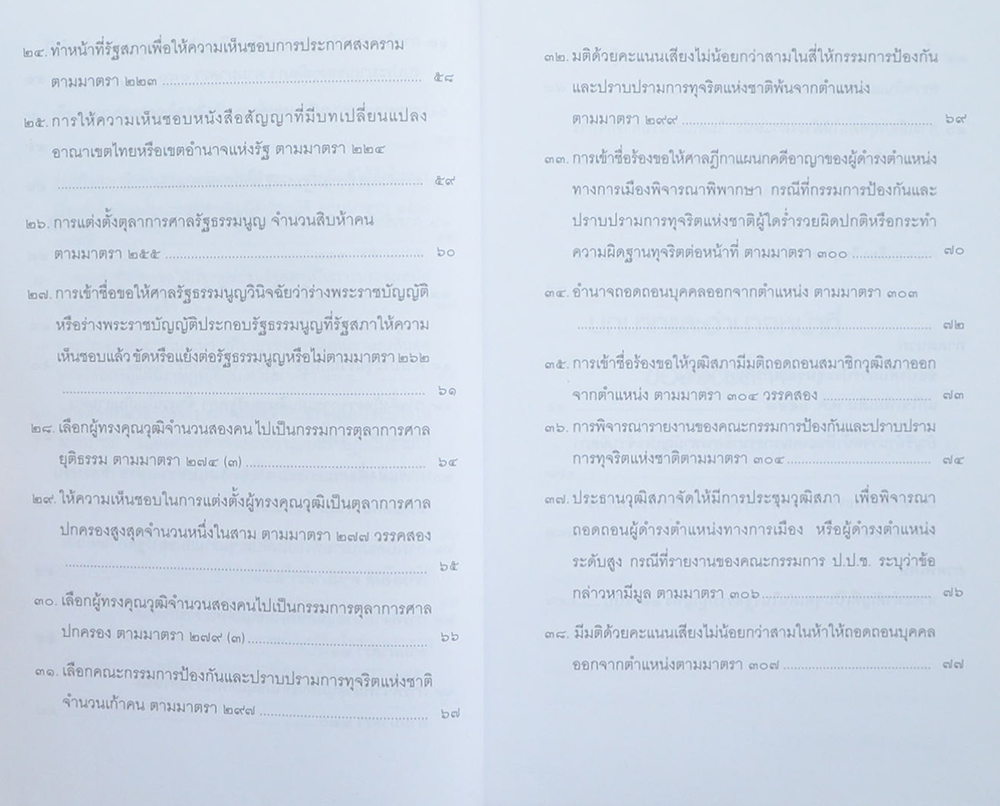 ๒๔. ทำหน้าที่รัฐสภาเพื่อให้ความเห็นชอบการประกาศสงคราม
ตามมาตรา ๒๒๓ ........................................ ๕๘
๒๕. การให้ความเห็นชอบหนังสือสัญญาที่มีบทเปลี่ยนแปลง
อาณาเขตไทยหรือเขตอำนาจแห่งรัฐ ตามมาตรา ๒๒๔
........................................ ๕๙
๒๖. การแต่งตั้งตุลาการศาลรัฐธรรมนูญ จำนวนสิบห้าคน
ตามมาตรา ๒๕๕ ........................................ ๖๐
๒๗. การเข้าชื่อขอให้ศาลรัฐธรรมนูญวินิจฉัยว่าร่างพระราชบัญญัติ
หรือร่างพระราชบัญญัติประกอบรัฐธรรมนูญที่รัฐสภาให้ความ
เห็นชอบแล้ว ขัดหรือแย้งต่อรัฐธรรมนูญหรือไม่ตามมาตรา ๒๖๒
........................................ ๖๑
๒๘. เลือกผู้ทรงคุณวุฒิจำนวนสองคน ไปเป็นกรรมการตุลาการศาล
ยุติธรรม ตามมาตรา ๒๗๔ (๓) ........................................ ๖๔
๒๙. ให้ความเห็นชอบในการแต่งตั้งผู้ทรงคุณวุฒิเป็นตุลาการศาล
ปกครองสูงสุดจำนวนหนึ่งในสาม ตามมาตรา ๒๗๗ วรรคสอง
........................................ ๖๕
๓๐. เลือกผู้ทรงคุณวุฒิจำนวนสองคนไปเป็นกรรมการตุลาการศาล
ปกครอง ตามมาตรา ๒๗๙ (๓) ........................................ ๖๖
๓๑. เลือกคณะกรรมการป้องกันและปราบปรามการทุจริตแห่งชาติ
จำนวนเก้าคน ตามมาตรา ๒๙๗ ........................................ ๖๗
๓๒. มติด้วยคะแนนเสียงไม่น้อยกว่าสามในสี่ให้กรรมการป้องกัน
และปราบปรามการทุจริตแห่งชาติพ้นจากตำแหน่ง
ตามมาตรา ๒๙๙ ........................................ ๖๙
๓๓. การเข้าชื่อร้องขอให้ศาลฎีกาแผนกคดีอาญาของผู้ดำรงตำแหน่ง
ทางการเมืองพิจารณาพิพากษา กรณีที่กรรมการป้องกันและ
ปราบปรามการทุจริตแห่งชาติผู้ใดร่ำรวยผิดปกติหรือกระทำ
ความผิดฐานทุจริตต่อหน้าที่ ตามมาตรา ๓๐๐ .................... ๗๐
๓๔. อำนาจถอดถอนบุคคลออกจากตำแหน่ง ตามมาตรา ๓๐๓
........................................ ๗๒
๓๕. การเข้าชื่อร้องขอให้วุฒิสภามีมติถอดถอนสมาชิกวุฒิสภาออก
จากตำแหน่ง ตามมาตรา ๓๐๔ วรรคสอง .................... ๗๓
๓๖. การพิจารณารายงานของคณะกรรมการป้องกันและปราบปราม
การทุจริตแห่งชาติตามมาตรา ๓๐๔ .................... ๗๔
๓๗. ประธานวุฒิสภาจัดให้มีการประชุมวุฒิสภา เพื่อพิจารณา
ถอดถอนผู้ดำรงตำแหน่งทางการเมือง หรือผู้ดำรงตำแหน่ง
ระดับสูง กรณีที่รายงานของคณะกรรมการ ป.ป.ช. ระบุว่าข้อ
กล่าวหามีมูล ตามมาตรา ๓๐๖ .................... ๗๖
๓๘. มีมติด้วยคะแนนเสียงไม่น้อยกว่าสามในห้าให้ถอดถอนบุคคล
ออกจากตำแหน่งตามมาตรา ๓๐๗ .................... ๗๗